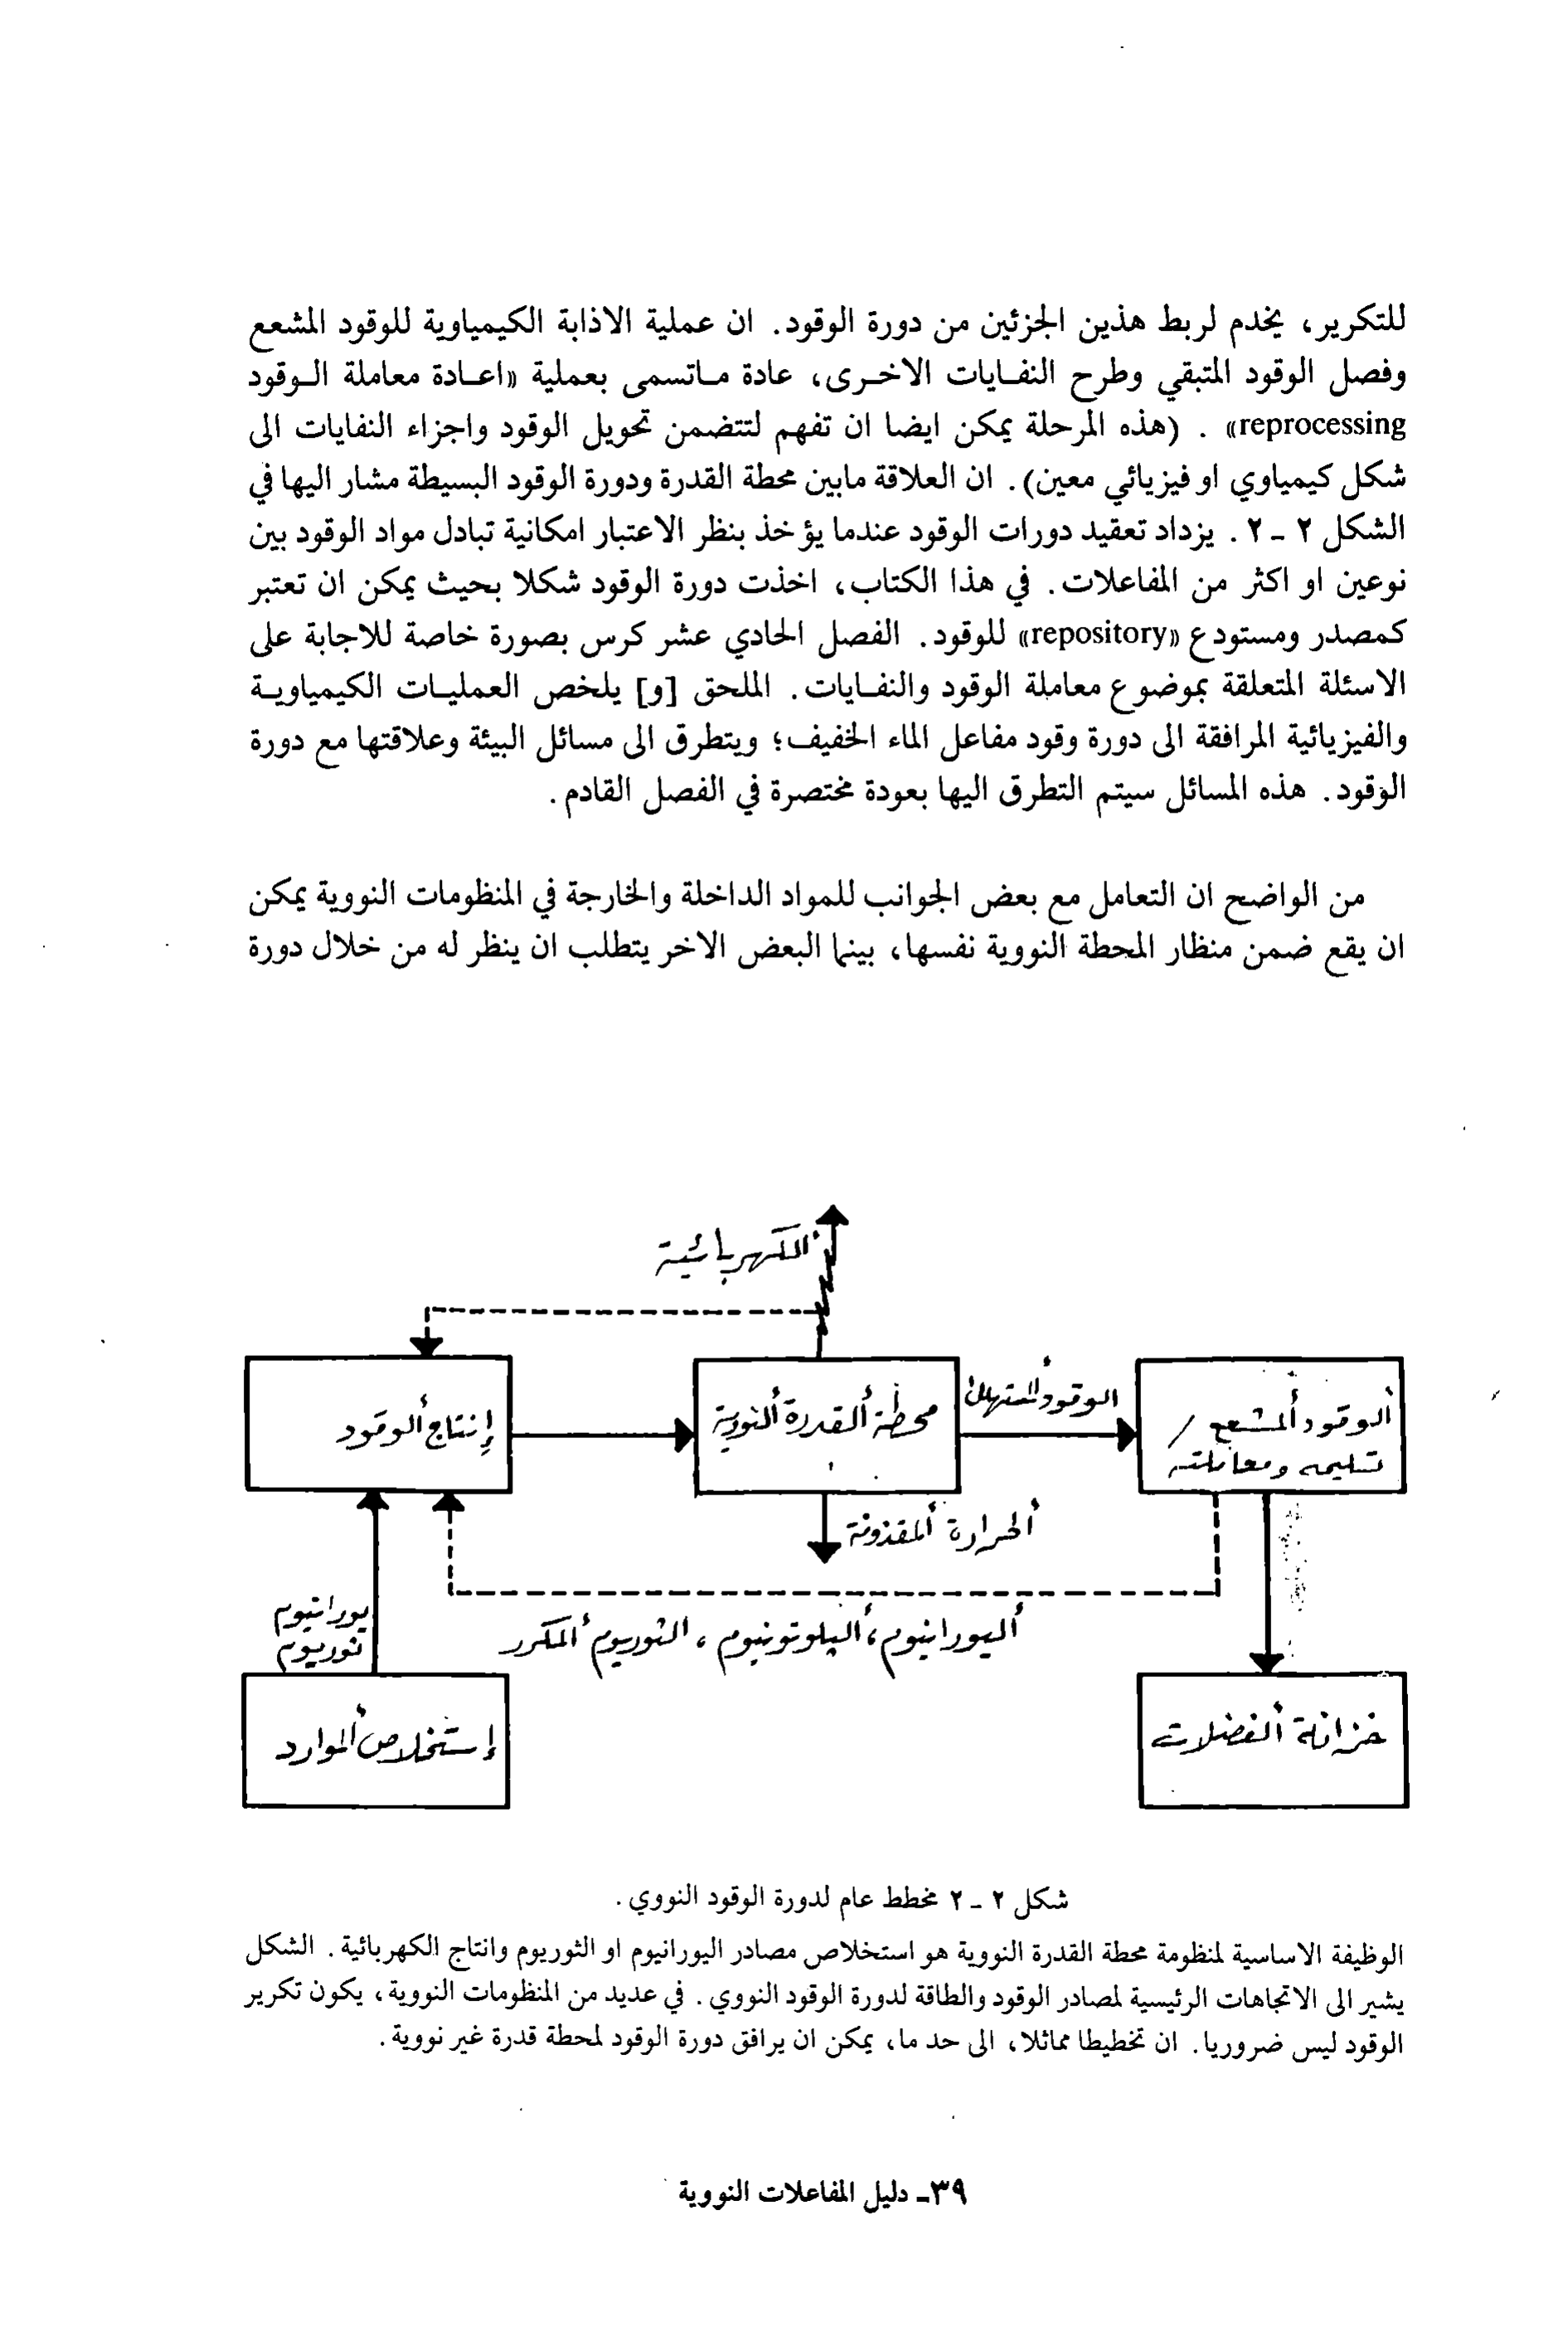 للتكرير، يخدم لربط هذين الجزئين من دورة الوقود. ان عملية الاذابة الكيمياوية للوقود المشعع
وفصل الوقود المتبقي وطرح النفـايات الاخـرى، عادة مـاتسمى بعملية «اعـادة معاملة الـوقود
reprocessing» . (هذه المرحلة يمكن ايضا ان تفهم لتتضمن تحويل الوقود واجزاء النفايات الى
شكل كيمياوي او فيزيائي معين). ان العلاقة مابين محطة القدرة ودورة الوقود البسيطة مشار اليها في
الشكل ٢ - ٢ . يزداد تعقيد دورات الوقود عندما يؤخذ بنظر الاعتبار امكانية تبادل مواد الوقود بين
نوعين او اكثر من المفاعلات. في هذا الكتاب، اخذت دورة الوقود شكلا بحيث يمكن ان تعتبر
كمصدر ومستودع «repository» للوقود. الفصل الحادي عشر كرس بصورة خاصة للاجابة على
الاسئلة المتعلقة بموضوع معاملة الوقود والنفـايات. الملحق [و] يلخص العمليـات الكيمياويـة
والفيزيائية المرافقة الى دورة وقود مفاعل الماء الخفيف؛ ويتطرق الى مسائل البيئة وعلاقتها مع دورة
الوقود. هذه المسائل سيتم التطرق اليها بعودة مختصرة في الفصل القادم.
من الواضح ان التعامل مع بعض الجوانب للمواد الداخلة والخارجة في المنظومات النووية يمكن
ان يقع ضمن منظار المحطة النووية نفسها، بينما البعض الاخر يتطلب ان ينظر له من خلال دورة
الكهربائية
الوقود المستهلك
ألوقود ألمشعع /
تسليمه ومعاملته
محطة ألقدرة ألنووية
إنتاج ألوقود
ألحرارة ألمقذوفة
يورانيوم
ثوريوم
أليورانيوم، ألبلوتونيوم، الثوريوم ألمكرر
خزانة ألفضلات
إستخلاص ألموارد
شكل ٢ - ٢ مخطط عام لدورة الوقود النووي.
الوظيفة الاساسية لمنظومة محطة القدرة النووية هو استخلاص مصادر اليورانيوم او الثوريوم وانتاج الكهربائية. الشكل
يشير الى الاتجاهات الرئيسية لمصادر الوقود والطاقة لدورة الوقود النووي. في عديد من المنظومات النووية، يكون تكرير
الوقود ليس ضروريا. ان تخطيطا مماثلا، الى حد ما، يمكن ان يرافق دورة الوقود لمحطة قدرة غير نووية.
٣٩- دليل المفاعلات النووية